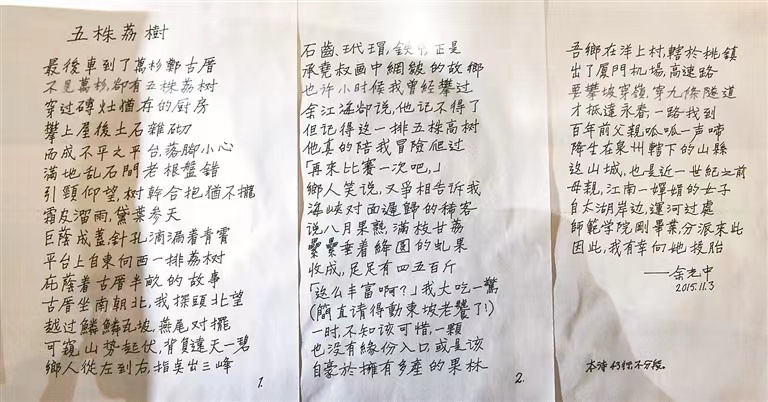 五株荔樹
最後車到了萬杉鄭古厝
不見萬杉,卻有五株荔树
穿过磚灶猶存的厨房
攀上屋後土石雜砌
而成,不平之平台,落脚小心
滿地乱石間老根盤錯
引頸仰望,树幹合抱猶不攏
霜皮溜雨,黛葉參天
巨蔭成蓋,針孔滴漏着青霄
平台上自東向西一排荔树
庇蔭着古厝半畝的故事
古厝坐南朝北,我探頭北望
越过鱗鱗瓦坡,燕尾对擺
可窺山勢起伏,背負遠天一碧
鄉人從左到右,指点出三峰
1.
石齒、玳瑁,鉄甲,正是
承堯叔画中綢皴的故鄉
也许小时候我曾經攀过
余江海卻说,他記不得了
但記得这一排五株高树
他真的陪我冒險爬过
「再来比賽一次吧,」
鄉人笑说,又爭相告诉我
海峽对面遲歸的稀客
说八月果熟,滿枝甘荔
纍纍垂着絳圓的虬果
收成,足足有四五百斤
「这么丰富啊?」我大吃一驚
(簡直請得動東坡老饕了!)
一时,不知该可惜,一顆
也没有緣份入口,或是该
自豪於擁有多產的果林
2.
吾鄉在洋上村,轄於桃鎮
出了厦门机場,高速路
要攀坡穿嶺,穿九條隧道
才抵達永春,一路找到
百年前父親呱呱一声啼
降生在泉州轄下的山縣
这山城,也是近一世紀之前
母親,江南一嬋娟的女子
自太湖岸边,運河过處
師範学院剛畢業,分派来此
因此,我有幸向她投胎
——余光中
2015.11.3
本诗43行,不分段。